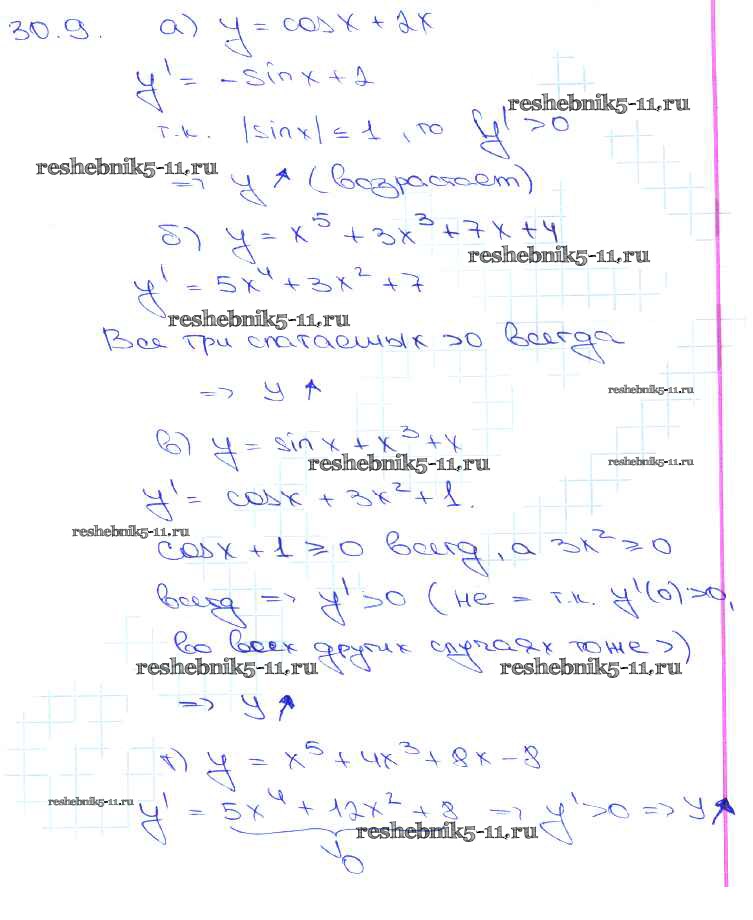 30.9. а) y = cosx + 2x
y' = -sinx + 2
reshebnik5-11.ru
т.к. |sinx| ≤ 1, то y' > 0
reshebnik5-11.ru
=> y ↑ (возрастает)
б) y = x⁵ + 3x³ + 7x + 4
reshebnik5-11.ru
y' = 5x⁴ + 3x² + 7
reshebnik5-11.ru
Все три слагаемых >0 всегда
=> y ↑
reshebnik5-11.ru
в) y = sinx + x³ + x
reshebnik5-11.ru
reshebnik5-11.ru
y' = cosx + 3x² + 1.
reshebnik5-11.ru
cosx + 1 ≥ 0 всегд, а 3x² ≥ 0
всегд => y' > 0 (не = т.к. y'(0) > 0,
во всех других случаях тоже >)
reshebnik5-11.ru
reshebnik5-11.ru
=> y ↑
г) y = x⁵ + 4x³ + 8x - 8
reshebnik5-11.ru
y' = 5x⁴ + 12x² + 8 => y' > 0 => y ↑
reshebnik5-11.ru
∨
0